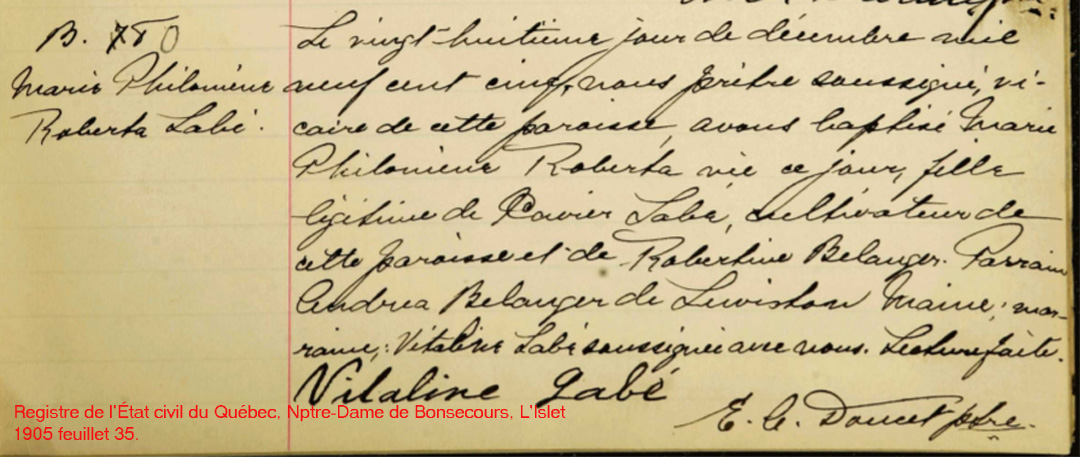 B. 780
Marie Philomène
Roberta Labé.
Le vingt-huitième jour de décembre mil
neuf cent cinq, nous prêtre soussigné, vi-
caire de cette paroisse, avons baptisé Marie
Philomène Roberta née ce jour, fille
légitime de Xavier Labé, cultivateur de
cette paroisse et de Robertine Belanger. Parrain
Andrea Belanger de Lewiston Maine; mar-
raine; Vitaline Labé soussignée avec nous. Lecture faite.
Vitaline Labé
E. C. Doucet ptre.
Registre de l'État civil du Québec, Nptre-Dame de Bonsecours, L'Islet
1905 feuillet 35.